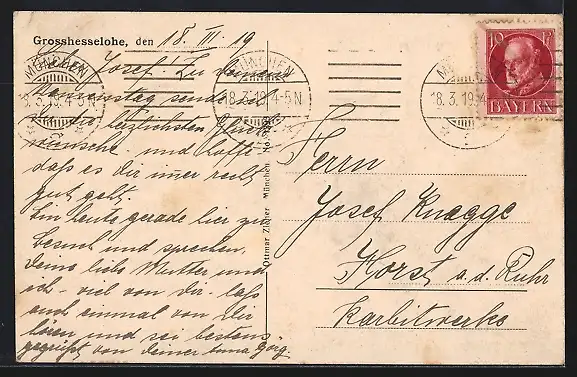 Grosshesselohe, den 18. III. 19
Lieber Josef! Zu deinem
Namenstag sende ich
dir die herzlichsten Glück-
wünsche und hoffe
daß es dir immer recht
gut geht.
bin heute gerade hier zu
Besuch und sprechen,
deine liebe Mutter und
ich - viel von dir - laß
auch einmal von dir
hören und sei bestens
gegrüßt von deiner
Ottmar Zieher, München
Herrn
Josef Knagge
Horst a.d. Ruhr
Karbitwerke
MÜNCHEN
18.3.19. 4-5 N
MÜNCHEN
18.3.19. 4-5 N
18.3.19. 4
10
BAYERN